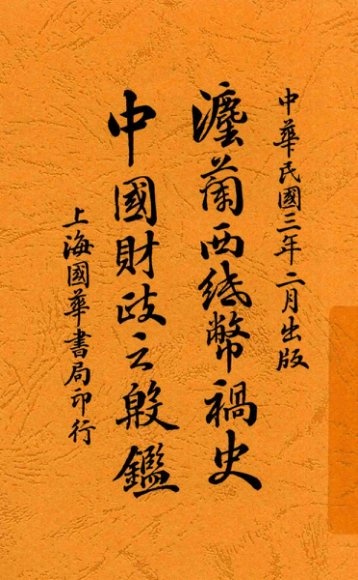 中華民國三年二月出版
灋蘭西紙幣禍史
中國財政之殷鑑
上海國華書局印行